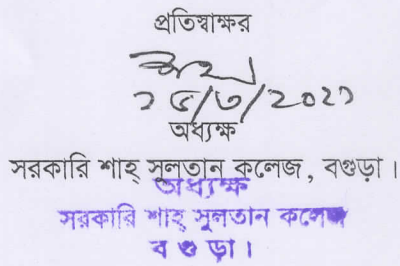 প্রতিস্বাক্ষর
১৫/৩/২০২১
অধ্যক্ষ
সরকারি শাহ্ সুলতান কলেজ, বগুড়া।
অধ্যক্ষ
সরকারি শাহ্ সুলতান কলেজ
ব গু ড়া।